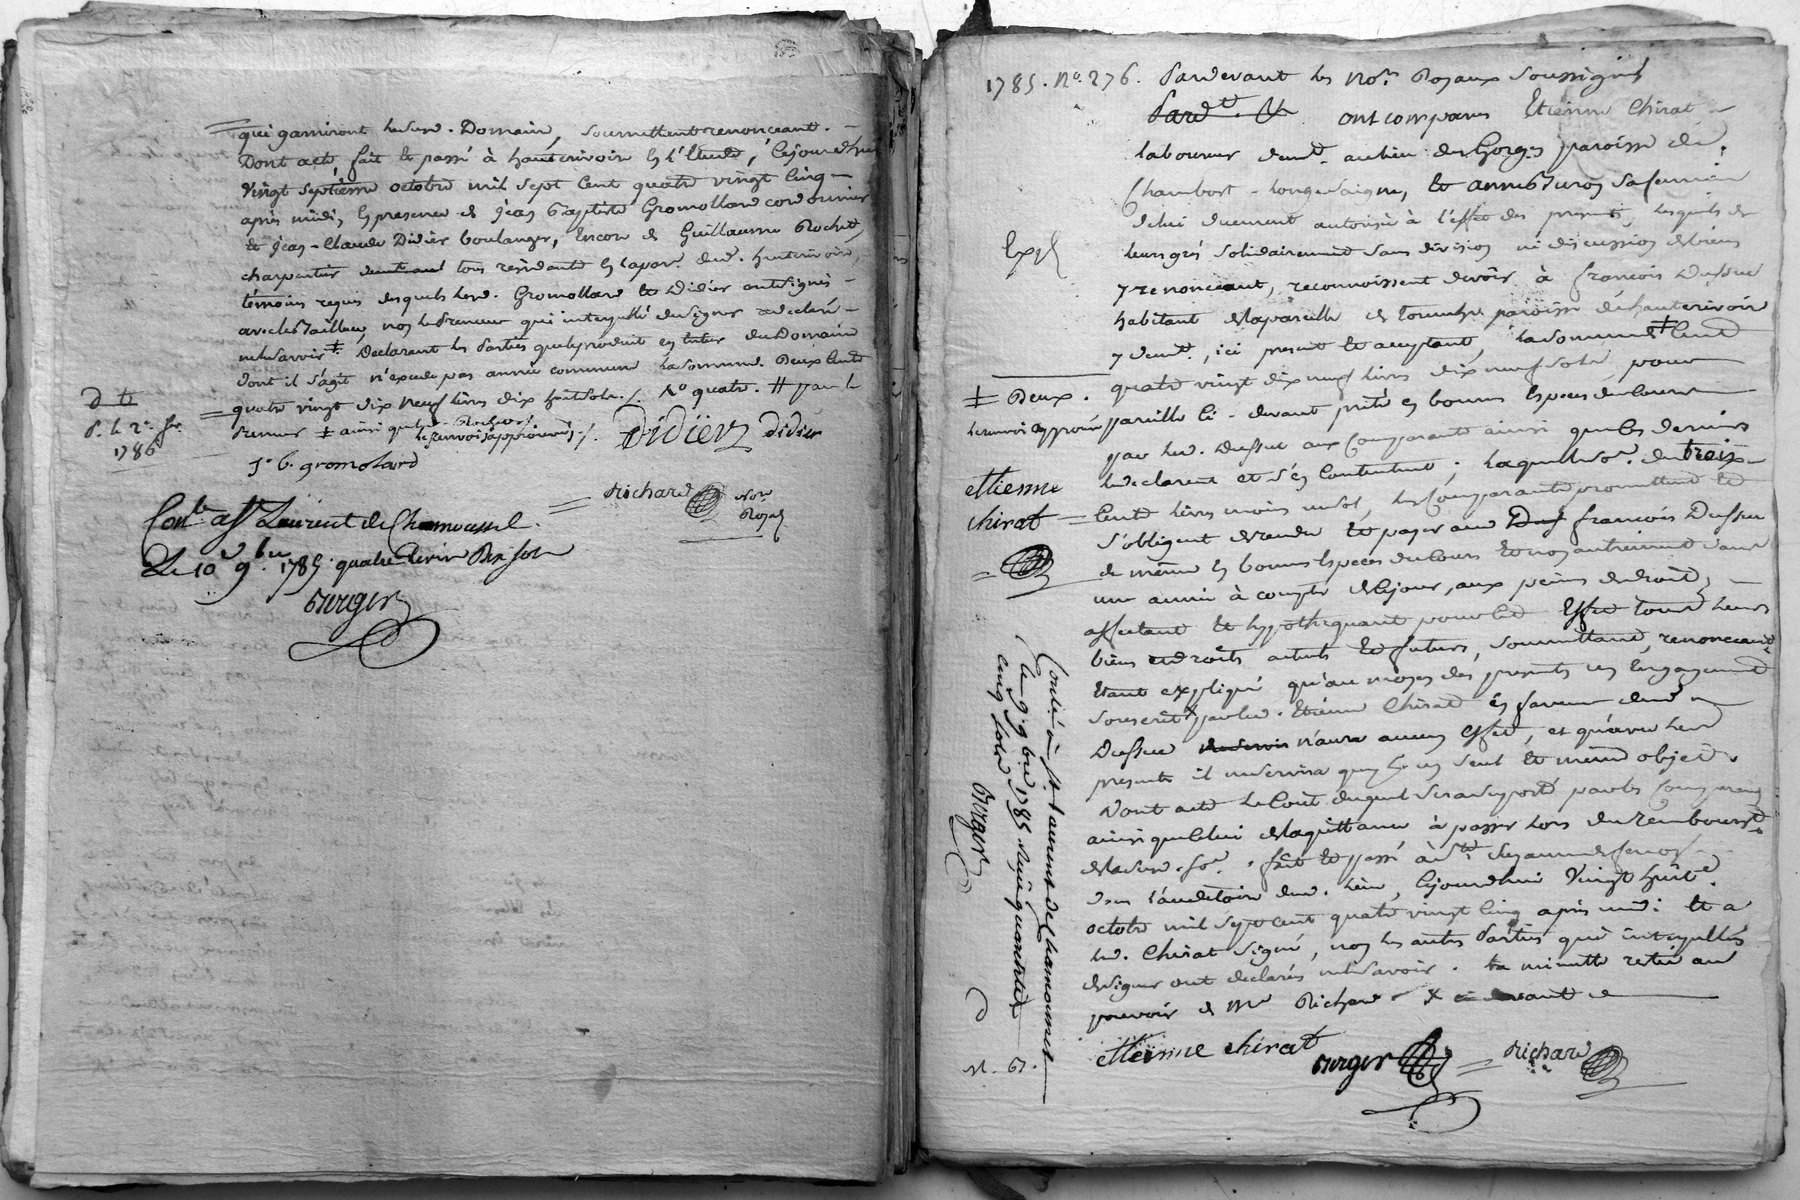 qui garniront led. Domaine, soumettant renonceant.
Dont acte fait et passé à hauterivoire en l'Etude, cejourdhui
vingt septieme octobre mil sept Cent quatre vingt Cinq
après midi, en presence de jean Baptiste Gromollard cordonnier
et jean-Claude Didier boulanger, encore de Guillaume Rochet
charpentier tous residants en la par. dud. hauterivoire,
témoins requis desquels lesd. Gromollard et Didier ont signé
avec les Bailleurs, non le Preneur qui interpellé de signer a declaré
ne le savoir ‡. Declarant les Parties que le produit en entier du Domaine
dont il s'agit n'excede pas année commune la somme Deux Cents
quatre vingt dix neuf livres dix huit sols. No quatre. H par le
Preneur ‡ ainsi que led. Rochet
le renvoi approuvé Didier didier
J. b. gromolard
Richard Nore
Royal
d t
p. le 2e
1786
Conlé à St Laurent de Chamousset
Le 10 9bre 1785 quatre livres Dix sols
Berger
1785. No. 276. Pardevant les Nores Royaux Soussignés
Pard.t ont comparu Etienne Chirat
laboureur demt. au lieu des Gorges paroisse de
Chambost-longuesaigne, et anne sa femme
de lui duement autorisée à l'effet des presentes, lesquels de
leurs grés solidairement sans division ni discussion de biens
y renonceant, reconnoissent devoir à françois Dussuc
habitant de la parcelle de paroisse de hauterivoire
y demt., ici present et acceptant, la somme ‡ Cent
quatre vingt dix neuf livres dix neuf sols, pour
pareille ci-devant prêtée en bonnes Especes de Cours
par led. Dussuc aux Comparants ainsi que les derniers
le declarent et s'en Contentent; laquelle so.e de trois
Cent livres moins un sol, les Comparants promettent et
s'obligent de rendre et payer aud françois Dussuc
de même en bonnes Especes de Cours et non autrement dans
une année à compter de ce jour, aux peines de droit,
affectant et hypothequant pour cet Effet tous leurs
biens et droits actuels et futurs, soumettant, renonceant
Etant expliqué qu'au moyen des presentes un Engagement
souscrit par led. Etienne Chirat en faveur dud
Dussuc n'aura aucun effet, et qu'avec les
presentes il ne servira que d'un seul et même objet.
Dont acte le Cout duquel sera supporté par les Comparants
ainsi que celui de la quittance à passer lors du rembourst
de lad. so.e. fait et passé à
dans l'auditoire dud. lieu, cejourdhui vingt huit
octobre mil sept cent quatre vingt Cinq après midi et a
led. Chirat signé, non les autres Parties qui interpellées
de signer ont declarés ne le savoir. la minutte restée au
pouvoir de Me Richard
etienne chirat Berger Richard
Expé
‡ Deux.
le renvoi approuvé
etienne
chirat
Conlé à St Laurent de Chamousset
le 9 9bre 1785
cinq sols Berger